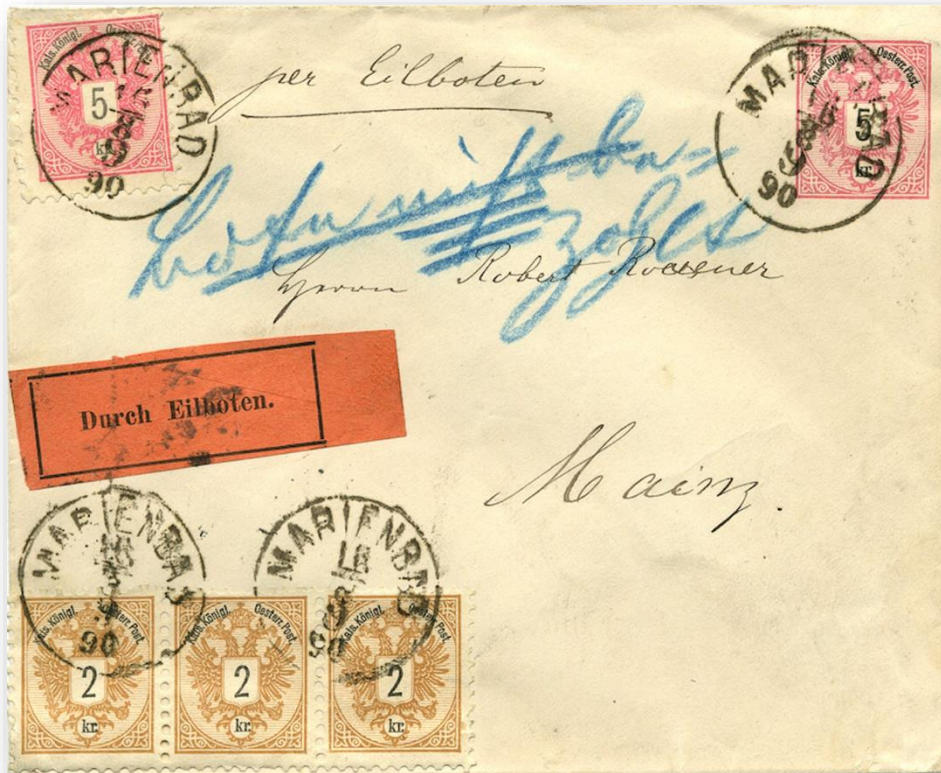 Kais. Königl. Oesterr. Post.
5
kr.
MARIENBAD
90
per Eilboten
Kais. Königl. Oesterr. Post.
5
kr.
MARIENBAD
90
Herrn Robert
Durch Eilboten.
Mainz.
MARIENBAD
90
MARIENBAD
90
Kais. Königl. Oesterr. Post.
2
kr.
Kais. Königl. Oesterr. Post.
2
kr.
Kais. Königl. Oesterr. Post.
2
kr.